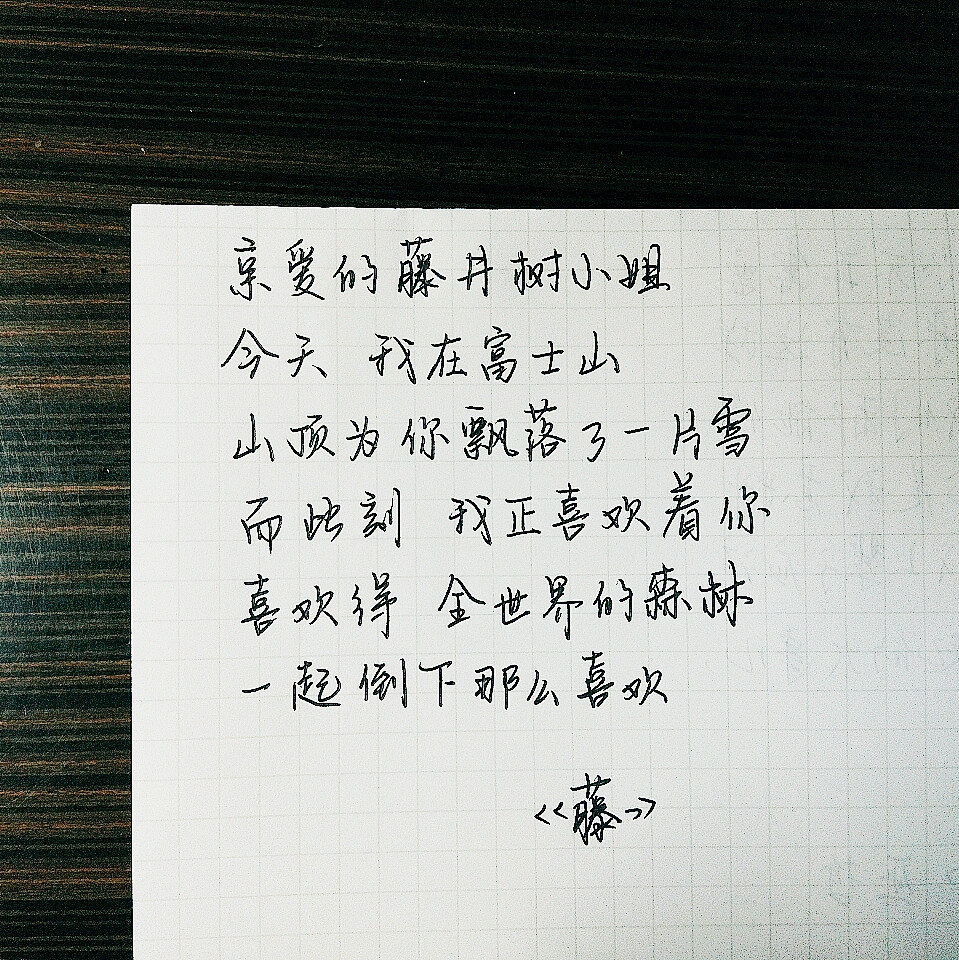 亲爱的藤井树小姐
今天 我在富士山
山顶为你飘落了一片雪
而此刻 我正喜欢着你
喜欢得 全世界的森林
一起倒下那么喜欢
<<藤>>